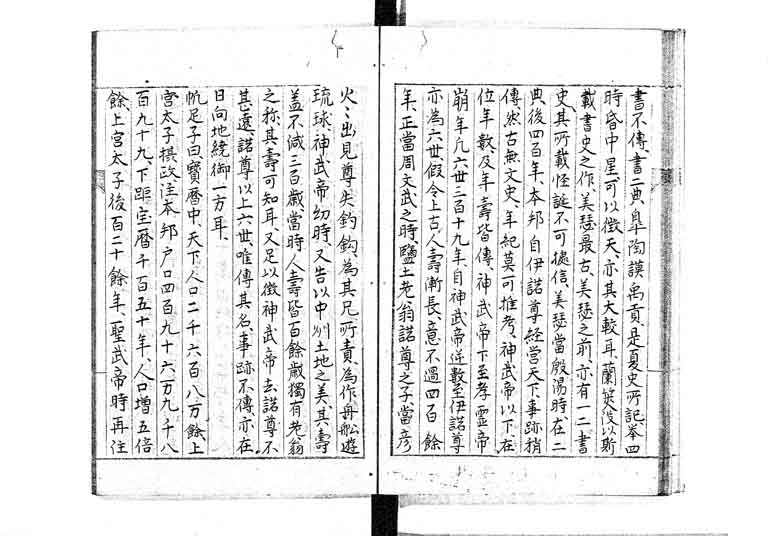 書不傳、書二典、皐陶謨、禹貢、是夏史所記、举四
時昏中星、可以徴天、亦其大較耳、蘭筴後以斯
載書史之作、美瑟最古、美瑟之前、亦有一二書
史、其所載怪誕不可據信、美瑟當殷湯時、在二
典後四百年、本邦自伊諾尊經営天下、事跡稍
傳、然古無文史、年紀莫可推考、神武帝以下、在
位年數及年壽皆傳、神武帝下至孝靈帝
崩年、凡六世三百十九年、自神武帝逆數至伊諾尊
亦為六世、假令上古人壽漸長、意不過四百餘
年、正當周文武之時、鹽土老翁、諾尊之子、當彦
火〻出見尊失釣鈎、為其兄所責、為作舟舩遊
琉球、神武帝幼時、又告以中州土地之美、其壽
盖不減三百歲、當時人壽皆百餘歲、獨有老翁
之称、其壽可知耳、又足以徴神武帝去諾尊不
甚遠、諾尊以上六世、唯傳其名、事跡不傳、亦在
日向地繞御一方耳、
帆足子曰、寶暦中、天下人口二千六百八万餘、上
宮太子摂政、注本邦户口四百九十六万九千八
百九十九、下距宝暦千百五十年、人口增五倍
餘、上宮太子後百二十餘年、聖武帝時再注